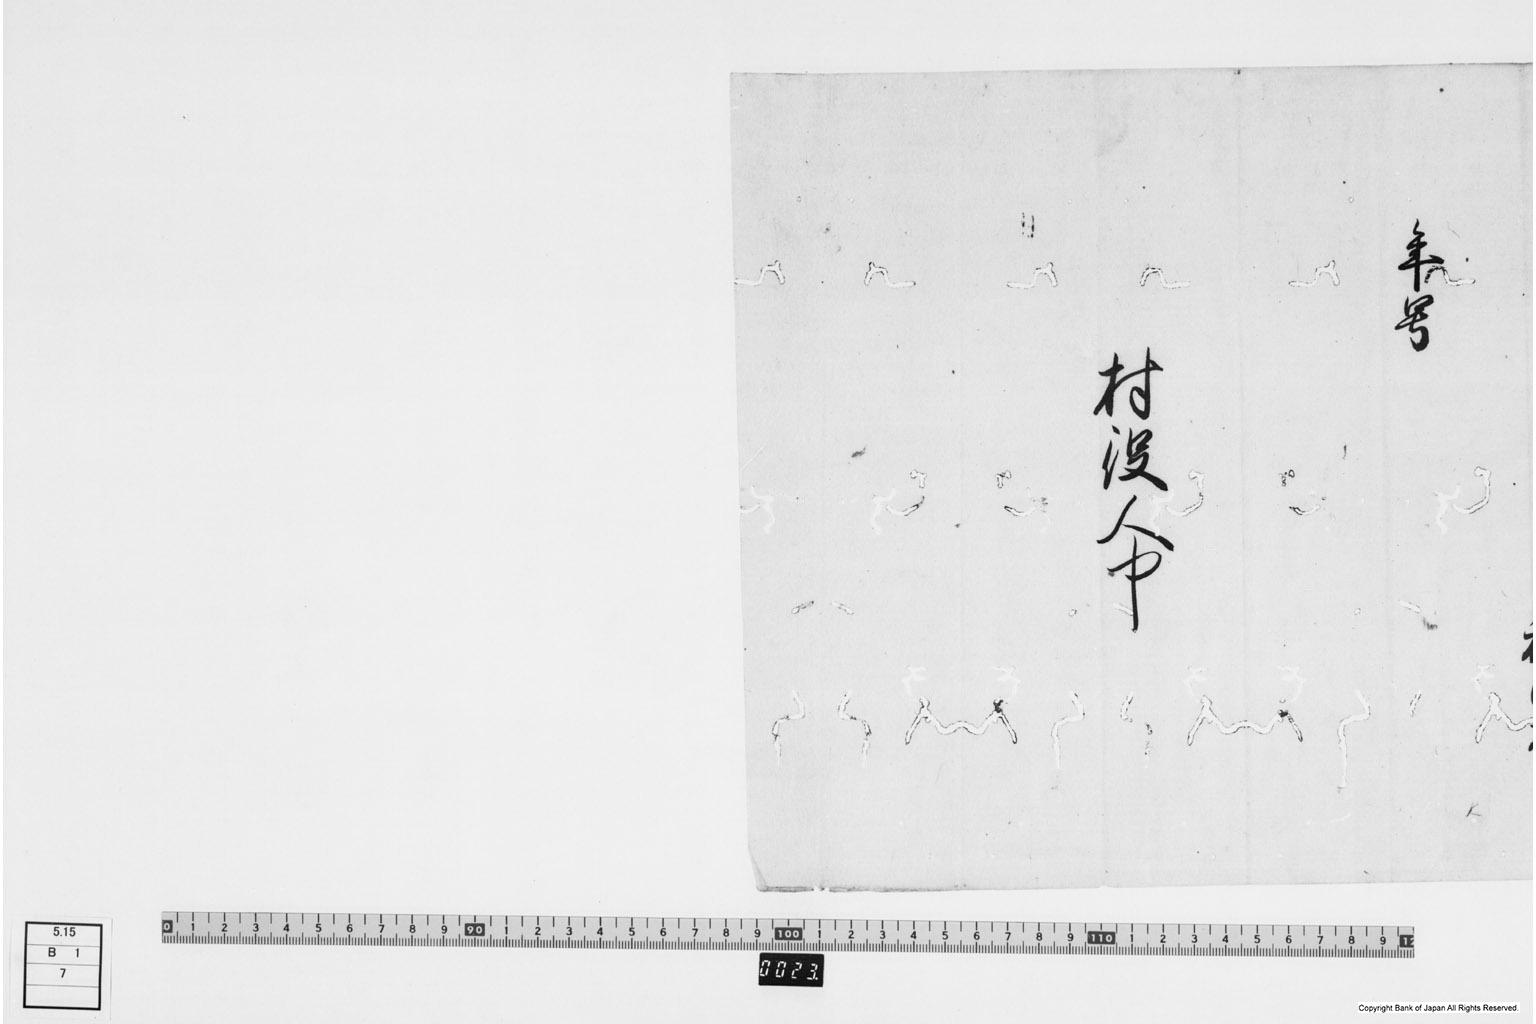 年号
村役人中
5.15
B 1
7
0 1 2 3 4 5 6 7 8 9 90 1 2 3 4 5 6 7 8 9 100 1 2 3 4 5 6 7 8 9 110 1 2 3 4 5 6 7 8 9 12
0023.
Copyright Bank of Japan All Rights Reserved.